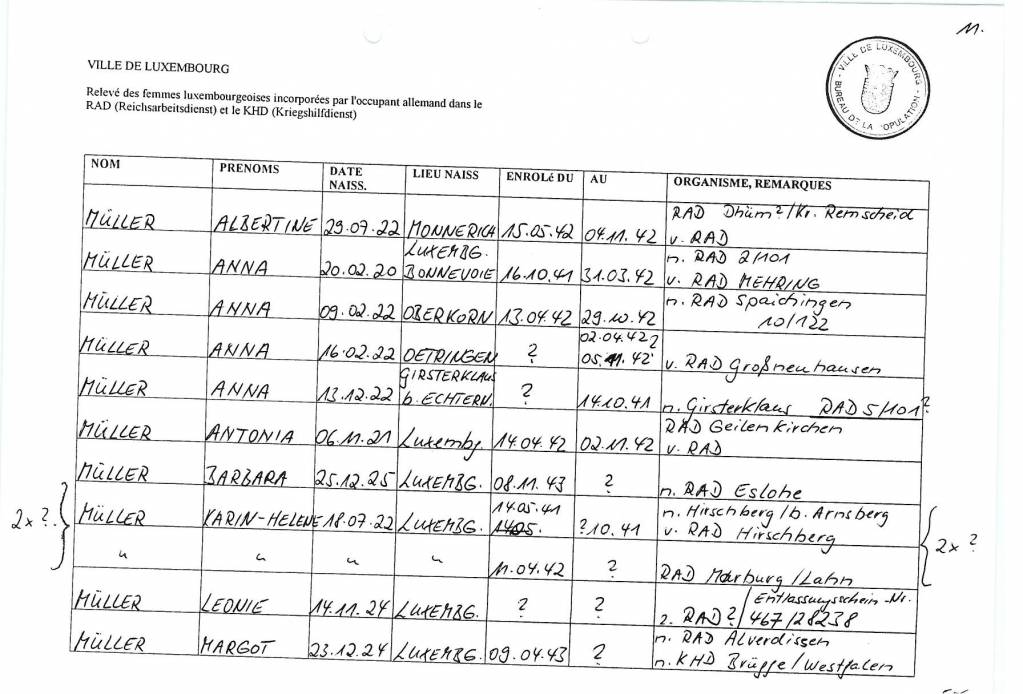 11.
VILLE DE LUXEMBOURG
Relevé des femmes luxembourgeoises incorporées par l'occupant allemand dans le
RAD (Reichsarbeitsdienst) et le KHD (Kriegshilfdienst)
VILLE DE LUXEMBOURG
BUREAU DE LA POPULATION
NOM PRENOMS DATE NAISS. LIEU NAISS ENROLé DU AU ORGANISME, REMARQUES
MÜLLER ALBERTINE 29.07.22 MONNERICH 15.05.42 04.11.42 RAD Dhüm?/Kr. Remscheid
v. RAD
MÜLLER ANNA 20.02.20 LUXEMBG. BONNEVOIE 16.10.41 31.03.42 n. RAD 2/101
v. RAD MEHRING
MÜLLER ANNA 09.02.22 OBERKORN 13.04.42 29.10.42 n. RAD Spaichingen
10/122
MÜLLER ANNA 16.02.22 OETRINGEN ? 02.04.42?
05.11.42 v. RAD Großneuhausen
MÜLLER ANNA 13.12.22 GIRSTERKLAUS b. ECHTERN. ? 14.10.41 n. Girsterklaus RAD 5/101?
MÜLLER ANTONIA 06.11.21 Luxembg. 14.04.42 02.11.42 RAD Geilenkirchen
v. RAD
MÜLLER BARBARA 25.12.25 LUXEMBG. 08.11.43 ? n. RAD Eslohe
2x ? MÜLLER KARIN-HELENE 18.07.22 LUXEMBG. 14.05.41 ?10.41 n. Hirschberg/b. Arnsberg
v. RAD Hirschberg
" " " " 11.04.42 ? RAD Marburg/Lahn 2x ?
MÜLLER LEONIE 14.11.24 LUXEMBG. ? ? z. RAD? / Entlassungsschein-Nr.
467/28238
MÜLLER MARGOT 23.12.24 LUXEMBG. 09.04.43 ? n. RAD Alverdissen
n. KHD Brügge/Westfalen